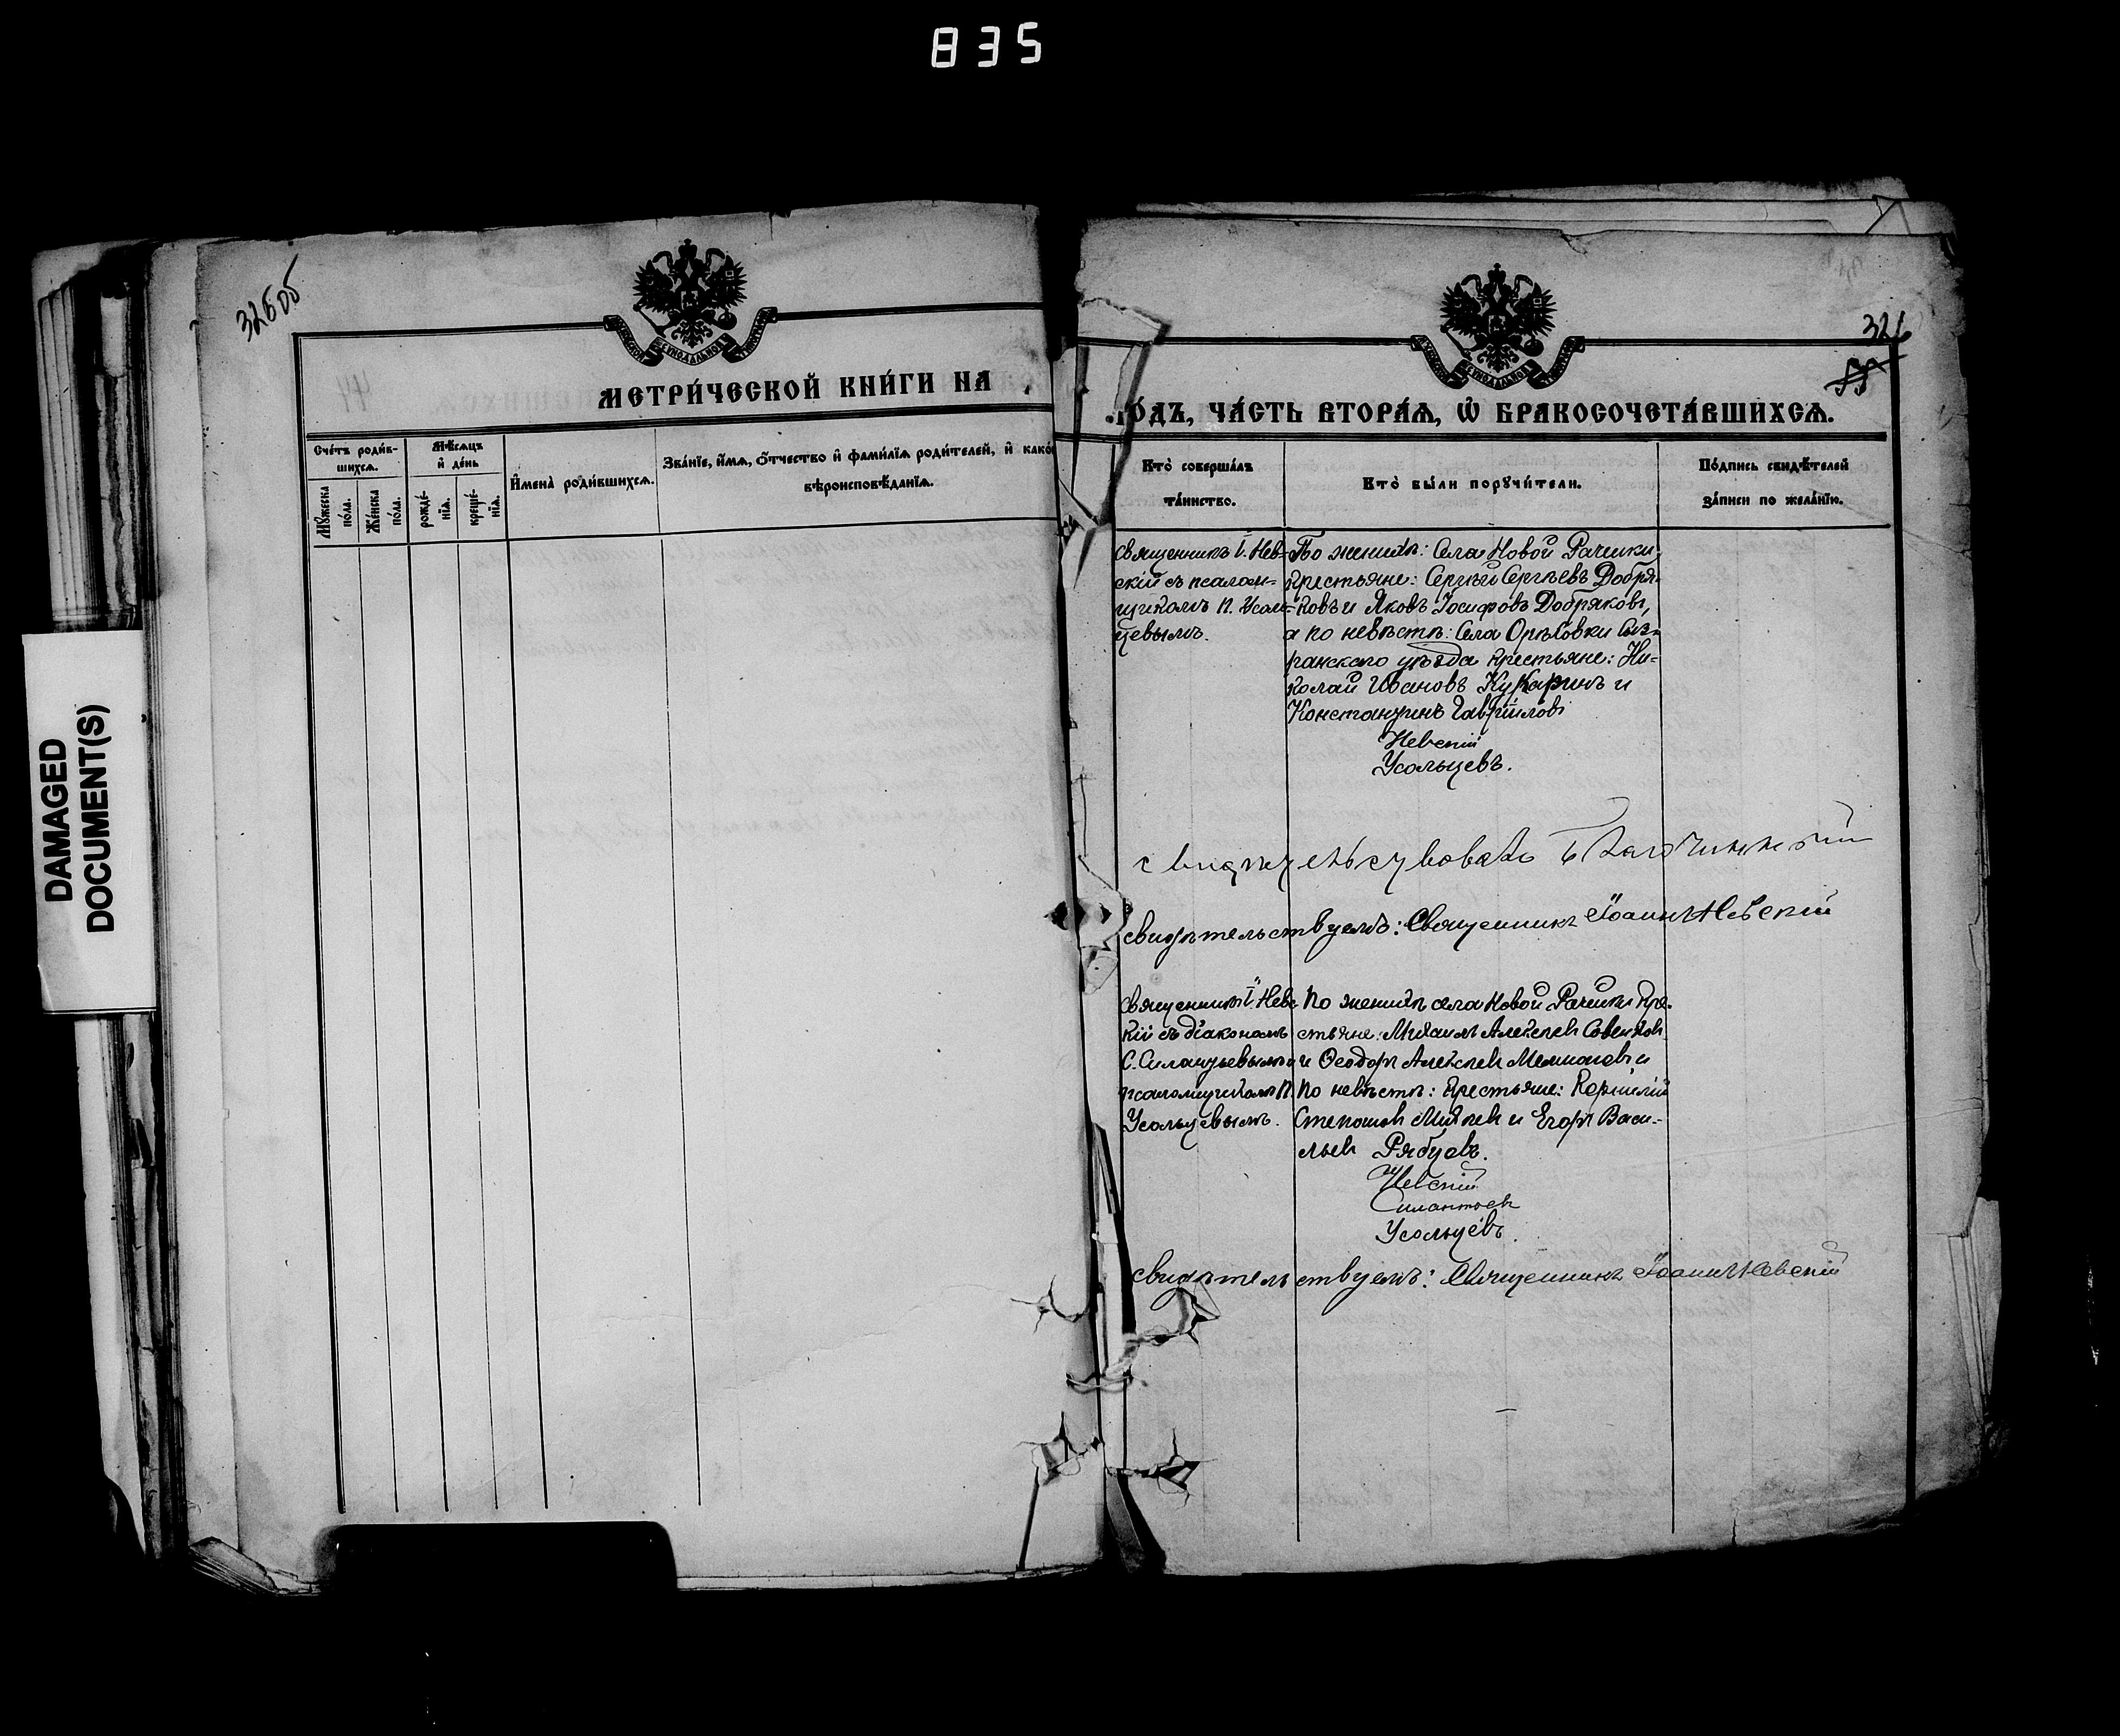 835
DAMAGED
DOCUMENT(S)
326об
МЕТРИ́ЧЕСКОЙ КНИ́ГИ НА
Сче́тъ роди́в-
шихсѧ.
Мѣ́сѧцъ
и҆ де́нь
Мꙋ́жеска
по́ла.
Же́нска
по́ла.
рожде́-
нїѧ.
креще́-
нїѧ.
И҆мена̀ роди́вшихсѧ.
Зва́нїе, и҆́мѧ, ѻ҆́тчество и҆ фами́лїѧ роди́телей, и҆ како́
вѣроисповѣ́данїѧ.
326
О́ДЪ, ЧА́СТЬ ВТОРА́Ѧ, Ѡ҆ БРАКОСОЧЕТА́ВШИХСѦ.
Кто̀ соверша́лъ
та́инство.
Кто̀ бы́ли порꙋчи́тели.
По́дпись свидѣ́телей
за́писи по жела́нїю.
Священникъ І. Нев-
скій съ псалом=
щикомъ П. Усоль=
цевымъ.
По женихѣ: Села Новой Рачейки
крестьяне: Сергѣй Сергѣевъ Добря-
ковъ и Яковъ Іосифовъ Добряковъ,
а по невѣстѣ: Села Орѣховки Сыз=
ранскаго уѣзда крестьяне: Ни=
колай Ивановъ Кукаринъ и
Константинъ Гавріиловъ
Невскій
Усольцевъ.
свидѣтельствовалъ Благочинный
свидѣтельствуемъ: Священникъ Іоаннъ Невскій
Священникъ І. Невс
кій съ діакономъ
С. Силантьевымъ и
псаломщикомъ П.
Усольцевымъ.
По женихѣ села Новой Рачейки кре-
стьяне: Михаилъ Алексѣевъ
и Ѳеодоръ Алексѣевъ и
По невѣстѣ: крестьяне: Корнилій
Степановъ и Егоръ Васи-
льевъ Рябцевъ.
Невскій
Силантьевъ
Усольцевъ.
свидѣтельствуемъ: Священникъ Іоаннъ Невскій